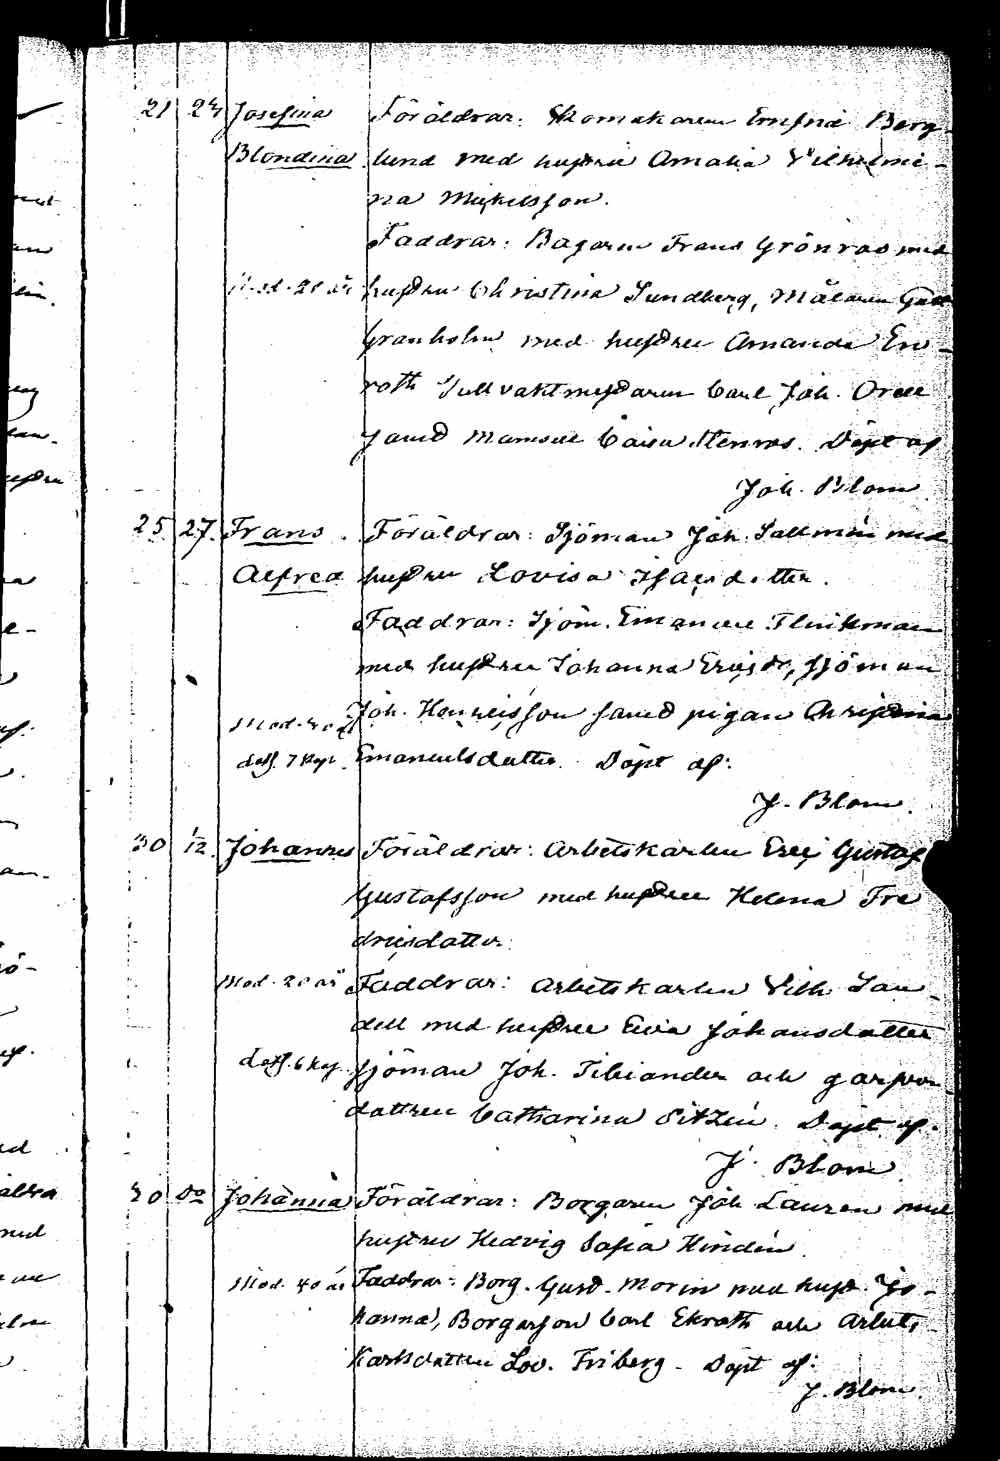 21 24 Josefina Föräldrar: Skomakaren Berg-
Blondina lund med hustru Amalia Vilhelmi-
na Mickelsson.
Faddrar: Bagaren Frans Grönroos med
Mod. 28 år hustru Christina Sundberg, Målaren Gust
Granholm med hustru Amanda En-
roth Tullvaktmästaren Carl Joh. Orell
samt Mamsell Caisa Stenroos. Döpt af
Joh. Blom
25 27. Frans Föräldrar: Sjöman Joh. Sallmén med
Alfred hustru Lovisa Isacsdotter.
Faddrar: Sjöm. Emanuel Flinkman
med hustru Johanna Ericsdr, sjöman
Mod. år Joh. Henricsson samt pigan Christina
dess. 7 Kop. Emanuelsdotter. Döpt af:
J. Blom.
30 1/12. Johannes Föräldrar: Arbetskarlen Eric Gustaf
Gustafsson med hustru Helena Fre
dricsdotter.
Mod. 28 år Faddrar: Arbetskarlen Vilh. San-
dell med hustru Eva Johansdotter
6 Kop. sjöman Joh. och
dottren Catharina Sitzén. Döpt af.
J. Blom
30 do Johanna Föräldrar: Borgaren Joh. Lauren med
hustru Hedvig Sofia Hindén.
Mod. 40 år Faddrar: Borg. Gust. Morin med hust. Jo-
hanna, Borgarson Carl Ekroth och Arbets-
karlsdottren Lov. Friberg. Döpt af:
J. Blom.